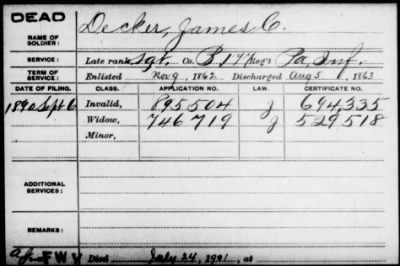 DEAD
NAME OF SOLDIER: Decker, James C.
SERVICE: Late rank, Sgt, Co. B, 177 Reg't Pa. Inf.
TERM OF SERVICE: Enlisted Nov 9, 1862 Discharged Aug 5, 1863
DATE OF FILING. CLASS. APPLICATION NO. LAW. CERTIFICATE NO.
1890 Sept 6 Invalid, 895504 J 694,335
Widow, 746719 J 529518
Minor,
ADDITIONAL SERVICES:
REMARKS:
F W V Died July 24, 1901, at